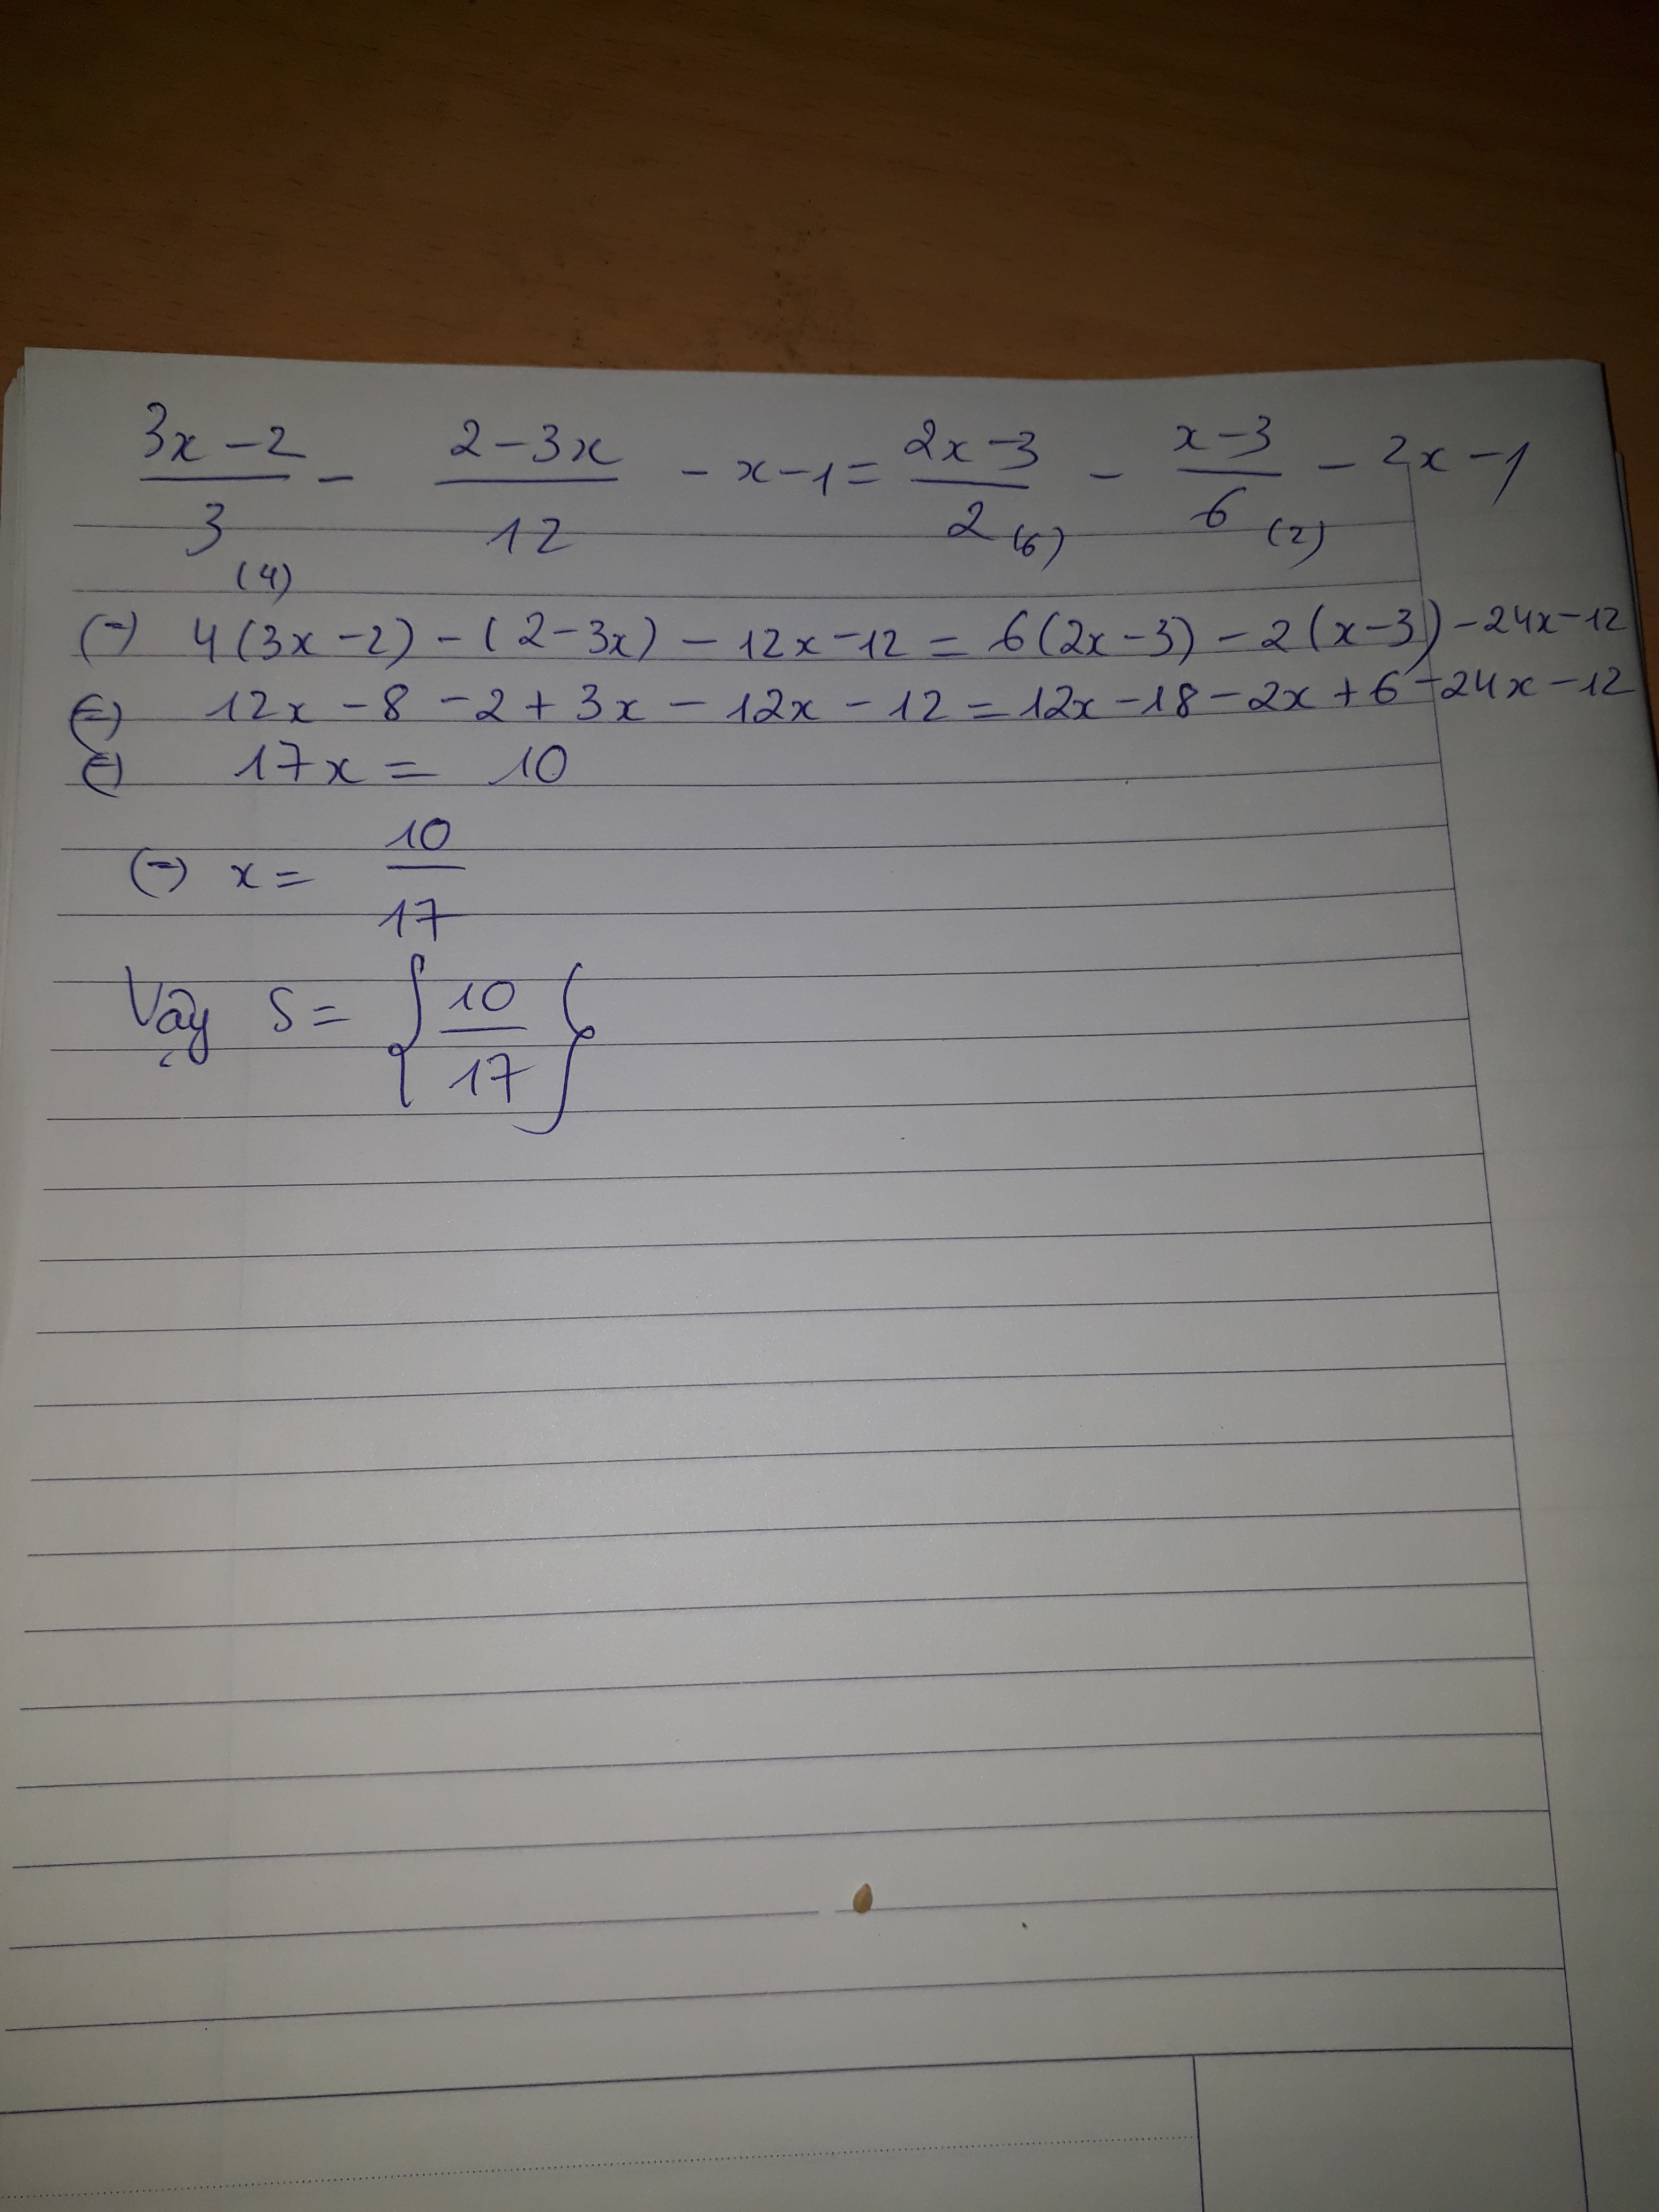 3x-2/3 (4) - 2-3x/12 - x-1 = 2x-3/2 (6) - x-3/6 (2) - 2x-1
(=) 4(3x-2) - (2-3x) - 12x-12 = 6(2x-3) - 2(x-3) - 24x-12
(=) 12x - 8 - 2 + 3x - 12x - 12 = 12x - 18 - 2x + 6 - 24x - 12
(=) 17x = 10
(=) x = 10/17
Vậy S = {10/17}